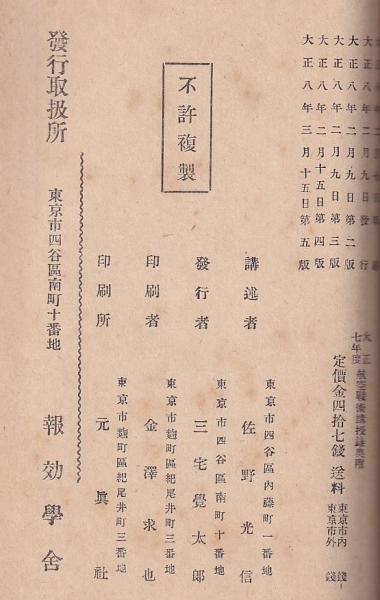 大正八年二月九日發行
大正八年二月九日第二版
大正八年二月九日第三版
大正八年二月十五日第四版
大正八年三月十五日第五版
大正
七年度
定價金四拾七錢 送料
東京市內 錢
東京市外 錢
不許複製
講述者
東京市四谷區內藤町一番地
佐野光信
發行者
東京市四谷區南町十番地
三宅覺太郎
印刷者
東京市麴町區紀尾井町三番地
金澤求也
印刷所
東京市麴町區紀尾井町三番地
元眞社
發行取扱所
東京市四谷區南町十番地
報効學舍